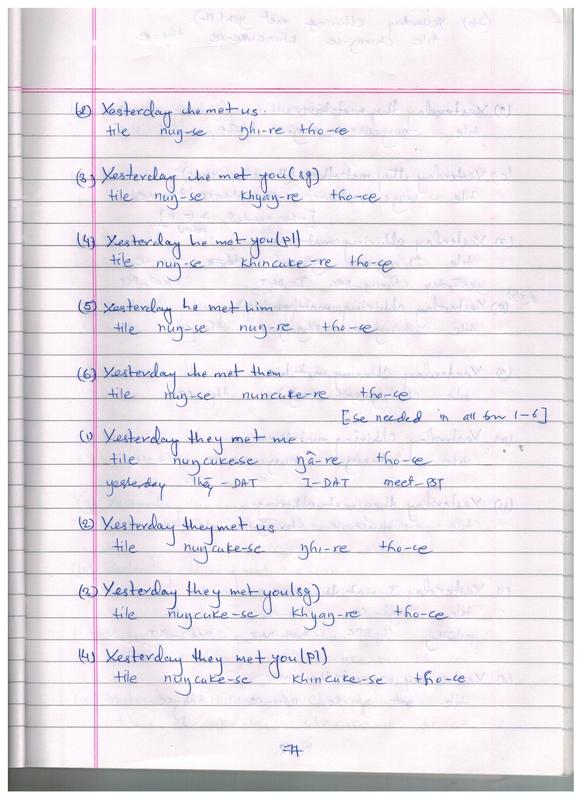 (2) Yesterday he met us.
tile nuŋ-se ŋhi-re tho-ce
(3) Yesterday he met you(sg)
tile nuŋ-se khyaŋ-re tho-ce
(4) Yesterday he met you(pl)
tile nuŋ-se khincuke-re tho-ce
(5) Yesterday he met him.
tile nuŋ-se nuŋ-re tho-ce
(6) Yesterday he met them
tile nuŋ-se nuncuke-re tho-ce
[se needed in all 1-6]
(1) Yesterday they met me.
tile nuŋcukese ŋâ-re tho-ce
yesterday They-DAT I-DAT meet-PST
(2) Yesterday they met us.
tile nuŋcuke-se ŋhi-re tho-ce
(3) Yesterday they met you(sg)
tile nuŋcuke-se khyaŋ-re tho-ce
(4) Yesterday they met you(pl)
tile nuŋcuke-se khincuke-se tho-ce